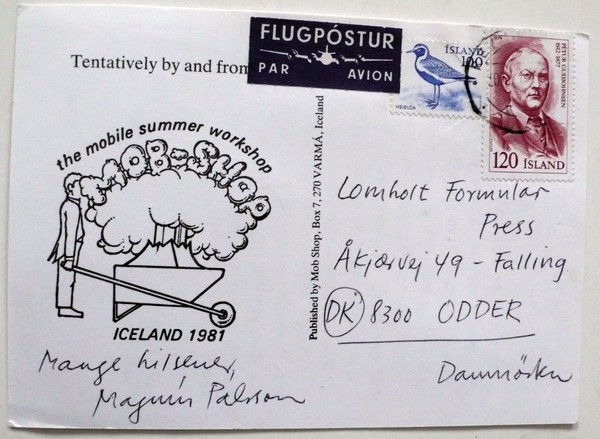 FLUGPÓSTUR
PAR AVION
ÍSLAND
100
HEIÐLÓA
PÉTUR GUÐJOHNSEN
1812-1877
120 ÍSLAND
Tentatively by and from
the mobile summer workshop
MOB-SHOP
ICELAND 1981
Mange hilsener,
Magnús Pálsson
Published by Mob Shop, Box 7, 270 VARMÁ, Iceland
Lomholt Formular
Press
Åkjærvej 49 - Falling
DK 8300 ODDER
Danmörku